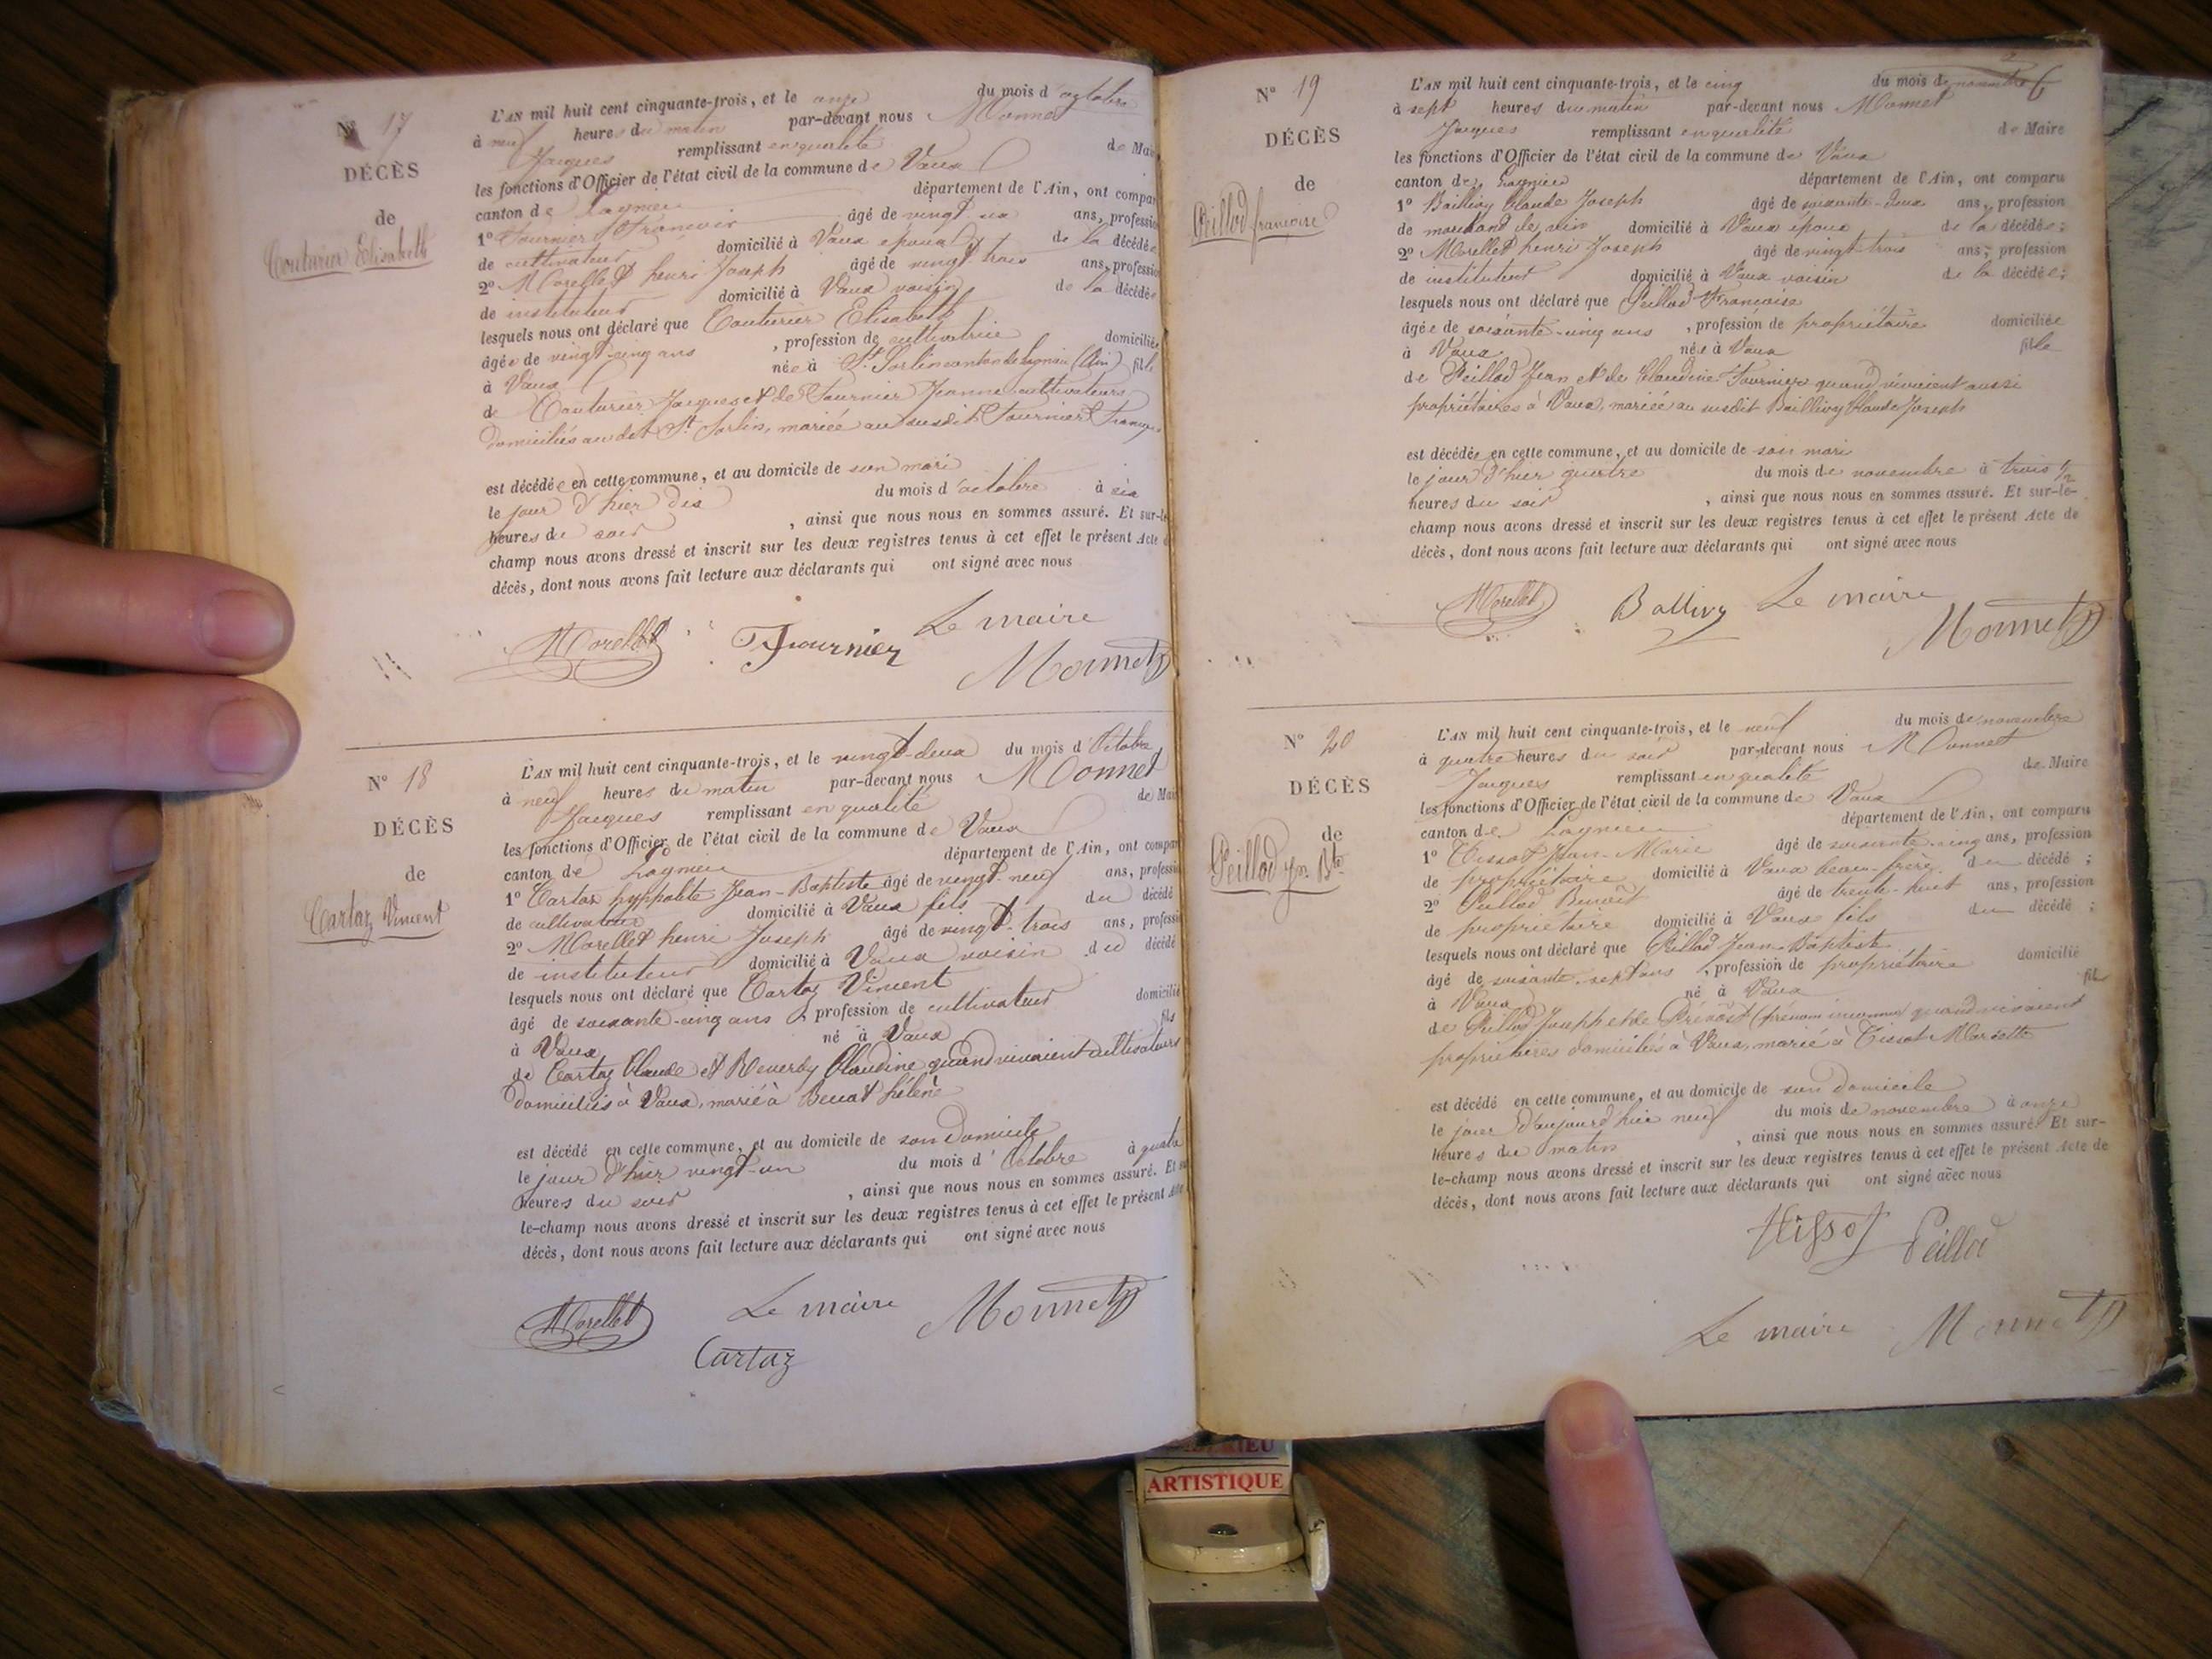 Nº 17
DÉCÈS
de
Couturier Elisabeth
L'AN mil huit cent cinquante-trois, et le onze du mois d'octobre
à neuf heures du matin par-devant nous Monnet
Jacques remplissant en qualité de Mai
les fonctions d'Officier de l'état civil de la commune de Vaux
canton de Lagnieu département de l'Ain, ont compar
1º Fournier François âgé de vingt six ans, professio
de cultivateur domicilié à Vaux époux de la décédée
2º Morellet henri Joseph âgé de vingt trois ans, professio
de instituteur domicilié à Vaux voisin de la décédée
lesquels nous ont déclaré que Couturier Elisabeth
âgée de vingt-cinq ans, profession de cultivatrice domiciliée
à Vaux née à St Sorlin canton de Lagnieu (Ain) fille
de Couturier Jacques et de Fournier Jeanne cultivateurs
domiciliés au dit St Sorlin, mariée au susdit Fournier Franço
est décédée en cette commune, et au domicile de son mari
le jour d'hier dix du mois d'octobre à six
heures du soir, ainsi que nous nous en sommes assuré. Et sur-le
champ nous avons dressé et inscrit sur les deux registres tenus à cet effet le présent Acte d
décès, dont nous avons fait lecture aux déclarants qui ont signé avec nous
Le maire
Morellet Fournier Monnet
Nº 18
DÉCÈS
de
Cartaz Vincent
L'AN mil huit cent cinquante-trois, et le vingt-deux du mois d'Octobre
à neuf heures du matin par-devant nous Monnet
Jacques remplissant en qualité de Mai
les fonctions d'Officier de l'état civil de la commune de Vaux
canton de Lagnieu département de l'Ain, ont compar
1º Cartaz hyppolite Jean-Baptiste âgé de vingt-neuf ans, professi
de cultivateur domicilié à Vaux fils du décédé
2º Morellet henri Joseph âgé de vingt-trois ans, professi
de instituteur domicilié à Vaux voisin du décédé
lesquels nous ont déclaré que Cartaz Vincent
âgé de soixante-cinq ans, profession de cultivateur domicilié
à Vaux né à Vaux fils
de Cartaz Claude et Claudine quand vivaient cultivateurs
domiciliés à Vaux, marié à hélène
est décédé en cette commune, et au domicile de son domicile
le jour d'hier vingt-un du mois d'Octobre à quatre
heures du soir, ainsi que nous nous en sommes assuré. Et su
le-champ nous avons dressé et inscrit sur les deux registres tenus à cet effet le présent Acte
décès, dont nous avons fait lecture aux déclarants qui ont signé avec nous
Morellet Le maire Monnet
Cartaz
Nº 19
DÉCÈS
de
Peillod françoise
L'AN mil huit cent cinquante-trois, et le cinq du mois de novembre
à sept heures du matin par-devant nous Monnet
Jacques remplissant en qualité de Maire
les fonctions d'Officier de l'état civil de la commune de Vaux
canton de Lagnieu département de l'Ain, ont comparu
1º Baillivy Claude Joseph âgé de soixante-deux ans, profession
de marchand de vin domicilié à Vaux époux de la décédée;
2º Morellet henri Joseph âgé de vingt-trois ans, profession
de instituteur domicilié à Vaux voisin de la décédée;
lesquels nous ont déclaré que Peillod Françoise
âgée de soixante-cinq ans, profession de propriétaire domiciliée
à Vaux née à Vaux fille
de Peillod Jean et de Claudine Fournier quand vivaient aussi
propriétaires à Vaux, mariée au susdit Baillivy Claude Joseph
est décédée en cette commune, et au domicile de son mari
le jour d'hier quatre du mois de novembre à trois 1/2
heures du soir, ainsi que nous nous en sommes assuré. Et sur-le-
champ nous avons dressé et inscrit sur les deux registres tenus à cet effet le présent Acte de
décès, dont nous avons fait lecture aux déclarants qui ont signé avec nous
Morellet Ballivy Le maire
Monnet
Nº 20
DÉCÈS
de
Peillod Jn Bte
L'AN mil huit cent cinquante-trois, et le neuf du mois de novembre
à quatre heures du soir par-devant nous Monnet
Jacques remplissant en qualité de Maire
les fonctions d'Officier de l'état civil de la commune de Vaux
canton de Lagnieu département de l'Ain, ont comparu
1º Tissot Jean-Marie âgé de soixante-cinq ans, profession
de propriétaire domicilié à Vaux beau-frère du décédé;
2º Peillod Benoît âgé de trente-huit ans, profession
de propriétaire domicilié à Vaux fils du décédé;
lesquels nous ont déclaré que Peillod Jean-Baptiste
âgé de soixante-sept ans, profession de propriétaire domicilié
à Vaux né à Vaux fils
de Peillod Joseph et de Prévost (prénom inconnu) quand vivaient
propriétaires domiciliés à Vaux, marié à Tissot
est décédé en cette commune, et au domicile de son domicile
le jour d'aujourd'hui neuf du mois de novembre à onze
heures du matin, ainsi que nous nous en sommes assuré. Et sur-
le-champ nous avons dressé et inscrit sur les deux registres tenus à cet effet le présent Acte de
décès, dont nous avons fait lecture aux déclarants qui ont signé avec nous
Tissot Peillod
Le maire Monnet
ARTISTIQUE